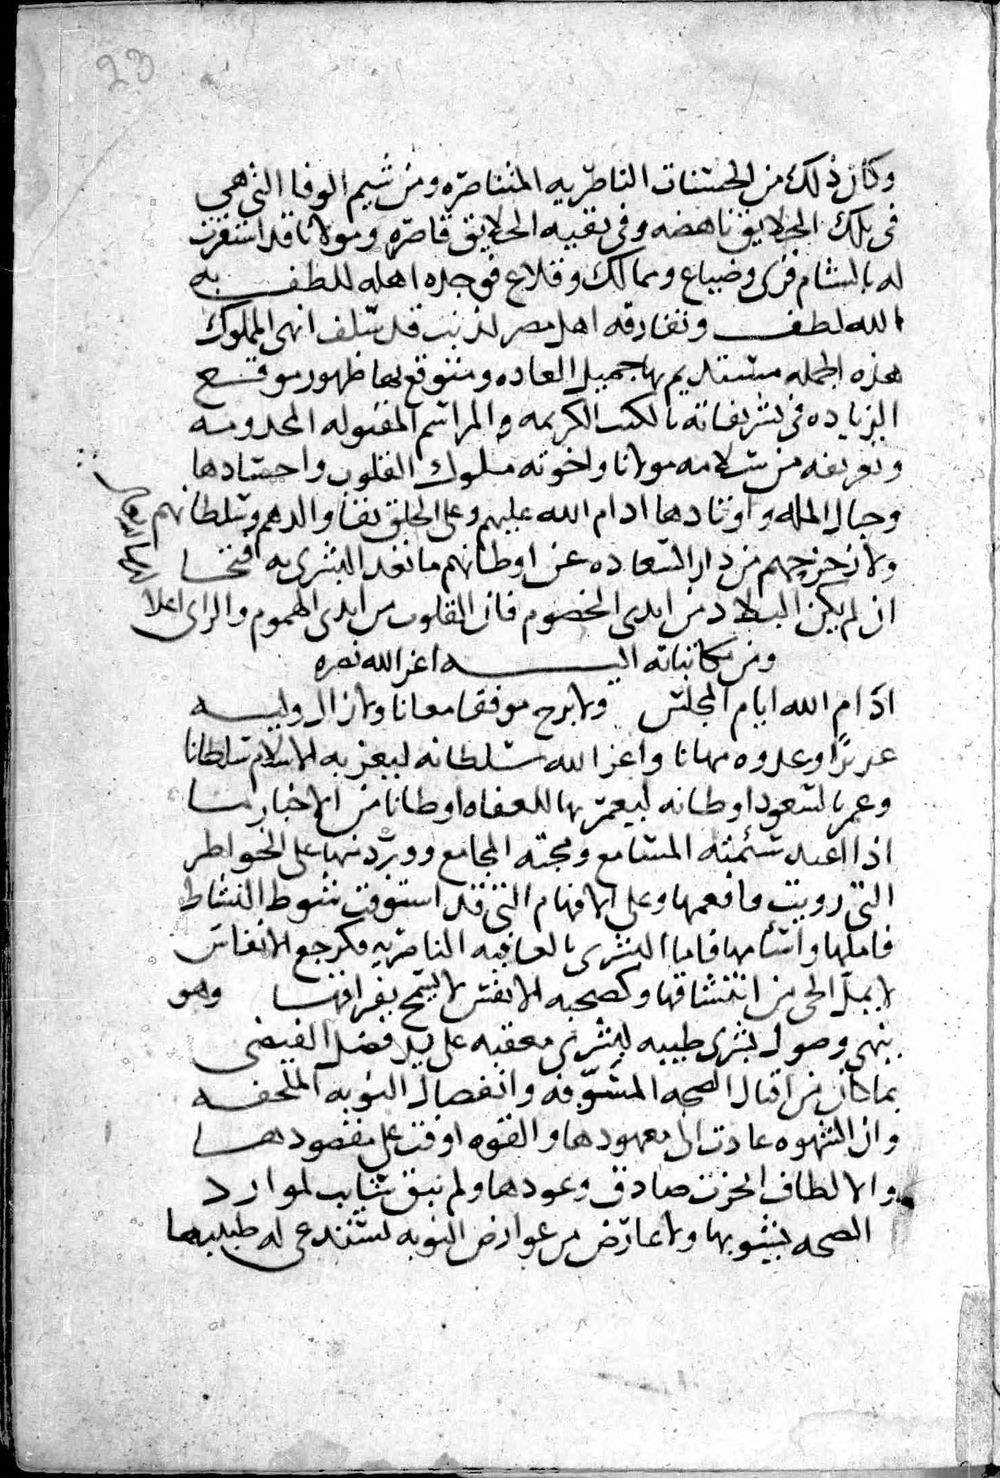 23
وكان ذلك من الحسنات الناصريه المتناصره ومن شيم الوفا التي هي
في تلك الخلايق ناهضه وفي بقيه الخلايق قاصره ومولانا قد استقرت
له بالشام قرى وضياع وممالك وقلاع فوجده اهله للطف به
الله لطف وتفارقه اهل مصر لذنب قد سلف انهى المملوك
هذه الجمله مستديم بها جميل العاده ومتوقع بها ظهور موقع
الزياده في تشريفاته بالكتب الكريمه والمراسم المقبوله المخدومه
وتعريفه من سلامه مولانا واخوته ملوك القلوب واجسادها
وجبال المله واوتادها ادام الله عليهم وعلى الخلق بقا والدهم وسلطانهم
ولا زحزحهم من دار السعاده عن اوطانهم ما نعد البشرى به فتحا
ان لم يكن البلاد من ايدى الخصوم فان القلوب من ايدى الهموم والراى اعلا
ومن مكاتباته اليه اعز الله نصره
ادام الله ايام المجلس ولا برح موفقا معانا ولا زال وليه
عزيزا وعدوه مهانا واعز الله سلطانه ليعز به للاسلام سلطانا
وعمر بالسعود اوطانه ليعمر بها للعفاه اوطانا من الاخبار ما
اذا اعيد سئمته المسامع ومجته المجامع وورد منها على الخواطر
التي رويت فافعمها وعلى الافهام التي قد استوفت شوط النشاط
فاملها واسامها فاما البشرى بالعافيه الناصريه فكرجع الانفاس
لا يمل الحى من انتشاقها وكصحبه الانفس لا يسمح بفراقها وهو
ينهى وصول بشرى طيبه لبشرى معقبه على يد فضل الفيضى
بما كان من اقبال الصحه المتشوفه وانفصال النوبه الملحفه
وان الشهوه عادت الى معهودها والقوه اوفت على مقصودها
والالطاف انجزت صادق وعودها ولم يبق شايب لموارد
الصحه يشوبها ولا عارض من عوارض النوبه يستدعى له طبيبها